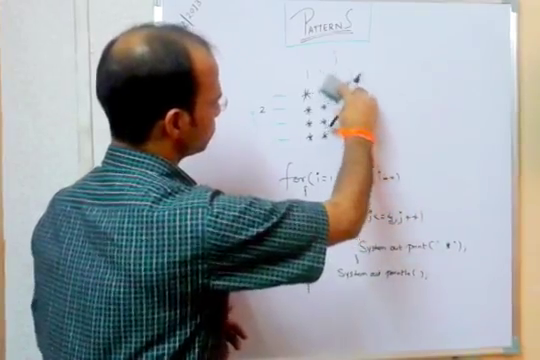 PATTERNS
*
2 * *
* *
* *
for(i=1 i++)
{
j<=4;j++)
System.out.print("*");
}
System.out.println();
}